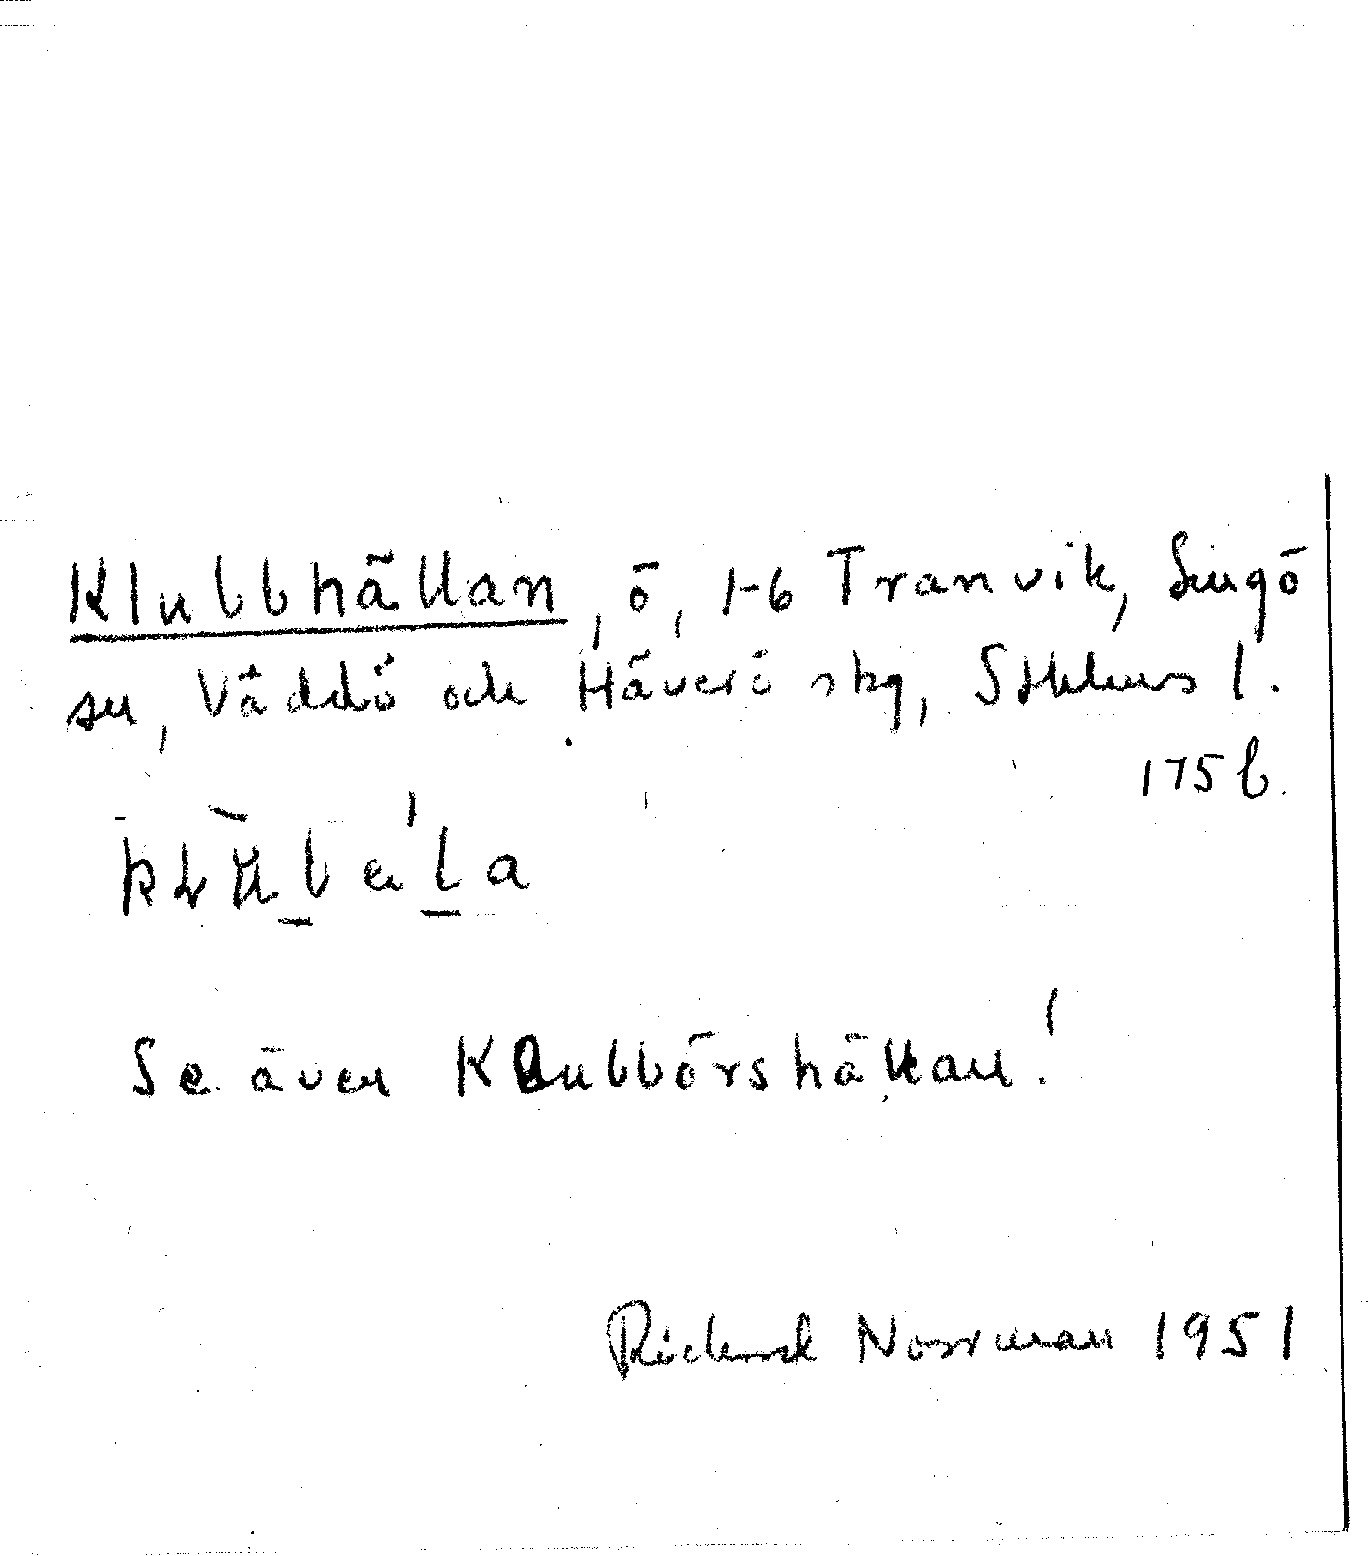 Klubbhällan, ö, 1-6 Tranvik, Singö
sn, Väddö och Häverö skg, Sthlms l.
175 b.
Se även Klubbörshällan!
Richard Norrman 1951